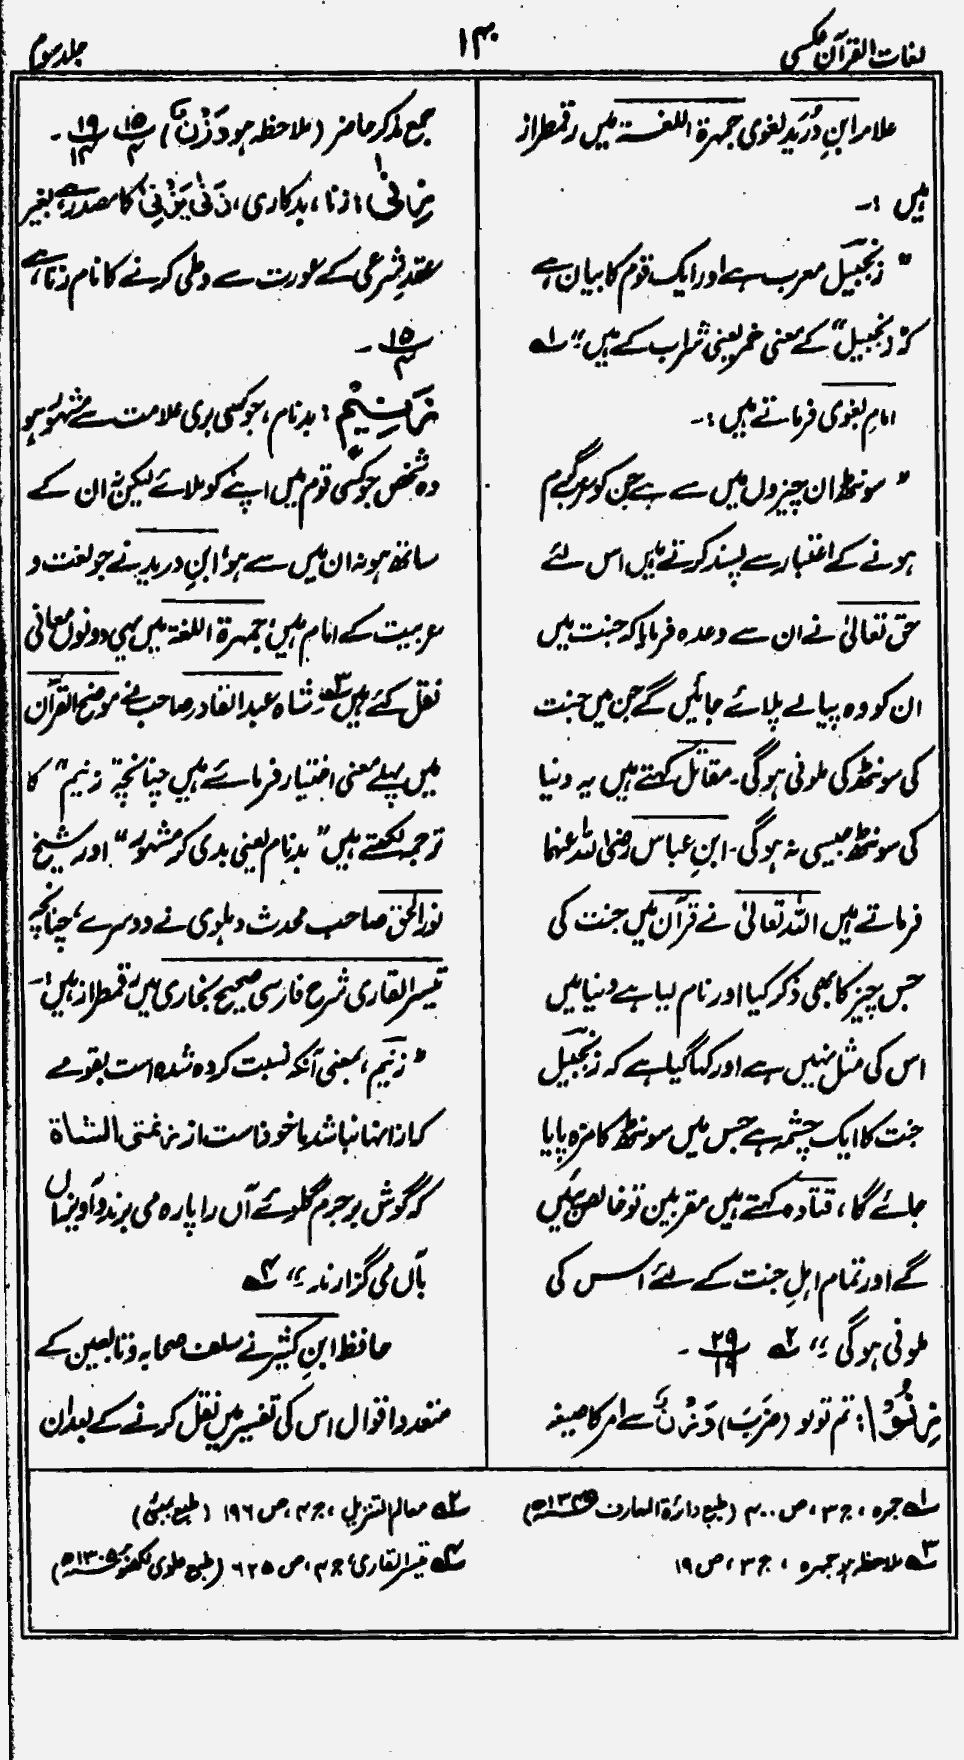 لغات القرآن عکسی
۱۴۰
جلد سوم
علامہ ابنِ دُرَید لغوی جمہرۃ اللغۃ میں رقمطراز
ہیں :۔
” زنجبیل معرب ہے اور ایک قوم کا بیان ہے
کہ ”زنجبیل“ کے معنی خمر یعنی شراب کے ہیں“ ؂۱
امام بغوی فرماتے ہیں :۔
” سونٹھ ان چیزوں میں سے ہے جن کو عرب گرم
ہونے کے اعتبار سے پسند کرتے ہیں اس لئے
حق تعالیٰ نے ان سے وعدہ فرمایا کہ جنت میں
ان کو وہ پیالے پلائے جائیں گے جن میں جنت
کی سونٹھ کی ملونی ہوگی۔ مقاتل کہتے ہیں یہ دنیا
کی سونٹھ جیسی نہ ہوگی۔ ابنِ عباس رضی اللہ عنہما
فرماتے ہیں اللہ تعالیٰ نے قرآن میں جنت کی
جس چیز کا بھی ذکر کیا اور نام لیا ہے دنیا میں
اس کی مثل نہیں ہے اور کہا گیا ہے کہ زنجبیل
جنت کا ایک چشمہ ہے جس میں سونٹھ کا مزہ پایا
جائے گا، قتادہ کہتے ہیں مقربین تو خالص پئیں
گے اور تمام اہلِ جنت کے لئے اس کی
ملونی ہوگی“ ؂۲ ۲۹/۱۹ ۔
زِنُوْا : تم تولو (ضَرَبَ) وَزْنٌ سے امر کا صیغہ
جمع مذکر حاضر (ملاحظہ ہو وَزْنٌ) ۱۵/۴ ۱۹/۱۴ ۔
زِنٰی : زنا، بدکاری، زَنٰی یَزْنِیْ کا مصدر ہے بغیر
عقدِ شرعی کے عورت سے وطی کرنے کا نام زنا ہے،
۱۵/۴ ۔
زَنِیْمٍ : بدنام، جو کسی بری علامت سے مشہور ہو
وہ شخص جو کسی قوم میں اپنے کو ملائے لیکن نہ ان کے
ساتھ ہو نہ ان میں سے ہو، ابنِ درید نے جو لغت و
عربیت کے امام ہیں، جمہرۃ اللغۃ میں یہی دونوں معانی
نقل کئے ہیں ؂۳ شاہ عبدالقادر صاحب نے موضح القرآن
میں پہلے معنی اختیار فرمائے ہیں چنانچہ ”زنیم“ کا
ترجمہ لکھتے ہیں ”بدنام یعنی بدی کر مشہور“ اور شیخ
نورالحق صاحب محدث دہلوی نے دوسرے، چنانچہ
تیسیر القاری شرح فارسی صحیح بخاری میں رقمطراز ہیں :۔
” زنیم، بمعنی آنکہ نسبت کردہ شدہ است بقومے
کہ ازانہا نباشد ماخوذ است از زنمتی الشاۃ
کہ گوش بر جرم گلوئے آں را پارہ می برند و آویزاں
بآں می گزارند“ ؂۴
حافظ ابنِ کثیر نے سلف صحابہ و تابعین کے
متعدد اقوال اس کی تفسیر میں نقل کرنے کے بعد ان
؂۱ جمہرہ، ج ۳، ص ۴۰۰ (طبع دائرۃ المعارف ۱۳۴۵ھ)
؂۲ معالم التنزیل، ج ۴، ص ۱۹۶ (طبع بمبئی)
؂۳ ملاحظہ ہو جمہرہ، ج ۳، ص ۱۹
؂۴ تیسیر القاری، ج ۴، ص ۶۲۵ (طبع علوی لکھنؤ ۱۳۰۵ھ)